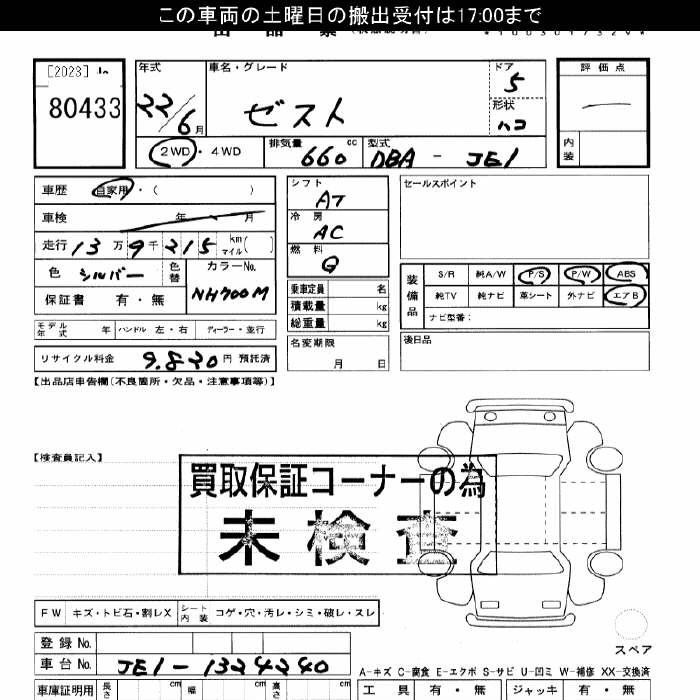 この車両の土曜日の搬出受付は17:00まで
[2023]
80433
年式 車名・グレード ドア 評価点
22/6月 ゼスト 5
形状 ハコ
内装
2WD・4WD 排気量 660 cc 型式 DBA - JE1
車歴 自家用・( )
車検 年 月
走行 13万9千215 km マイル( )
色 シルバー 色替 カラーNo. NH700M
保証書 有・無
シフト AT
冷房 AC
燃料 G
乗車定員 名
積載量 kg
総重量 kg
セールスポイント
装備品 S/R 純A/W P/S P/W ABS
純TV 純ナビ 革シート 外ナビ エアB
ナビ型番:
モデル年式 年 ハンドル 左・右 ディーラー・並行
名変期限 月 日
後日品
リサイクル料金 9,820円 預託済
【出品店申告欄(不良箇所・欠品・注意事項等)】
【検査員記入】
買取保証コーナーの為
未検査
FW キズ・トビ石・割レX シート内装 コゲ・穴・汚レ・シミ・破レ・スレ
登録No.
スペア
車台No. JE1-1324240
A-キズ C-腐食 E-エクボ S-サビ U-凹ミ W-補修 XX-交換済
車庫証明用 長さ cm 幅 cm 高さ cm 工具 有・無 ジャッキ 有・無